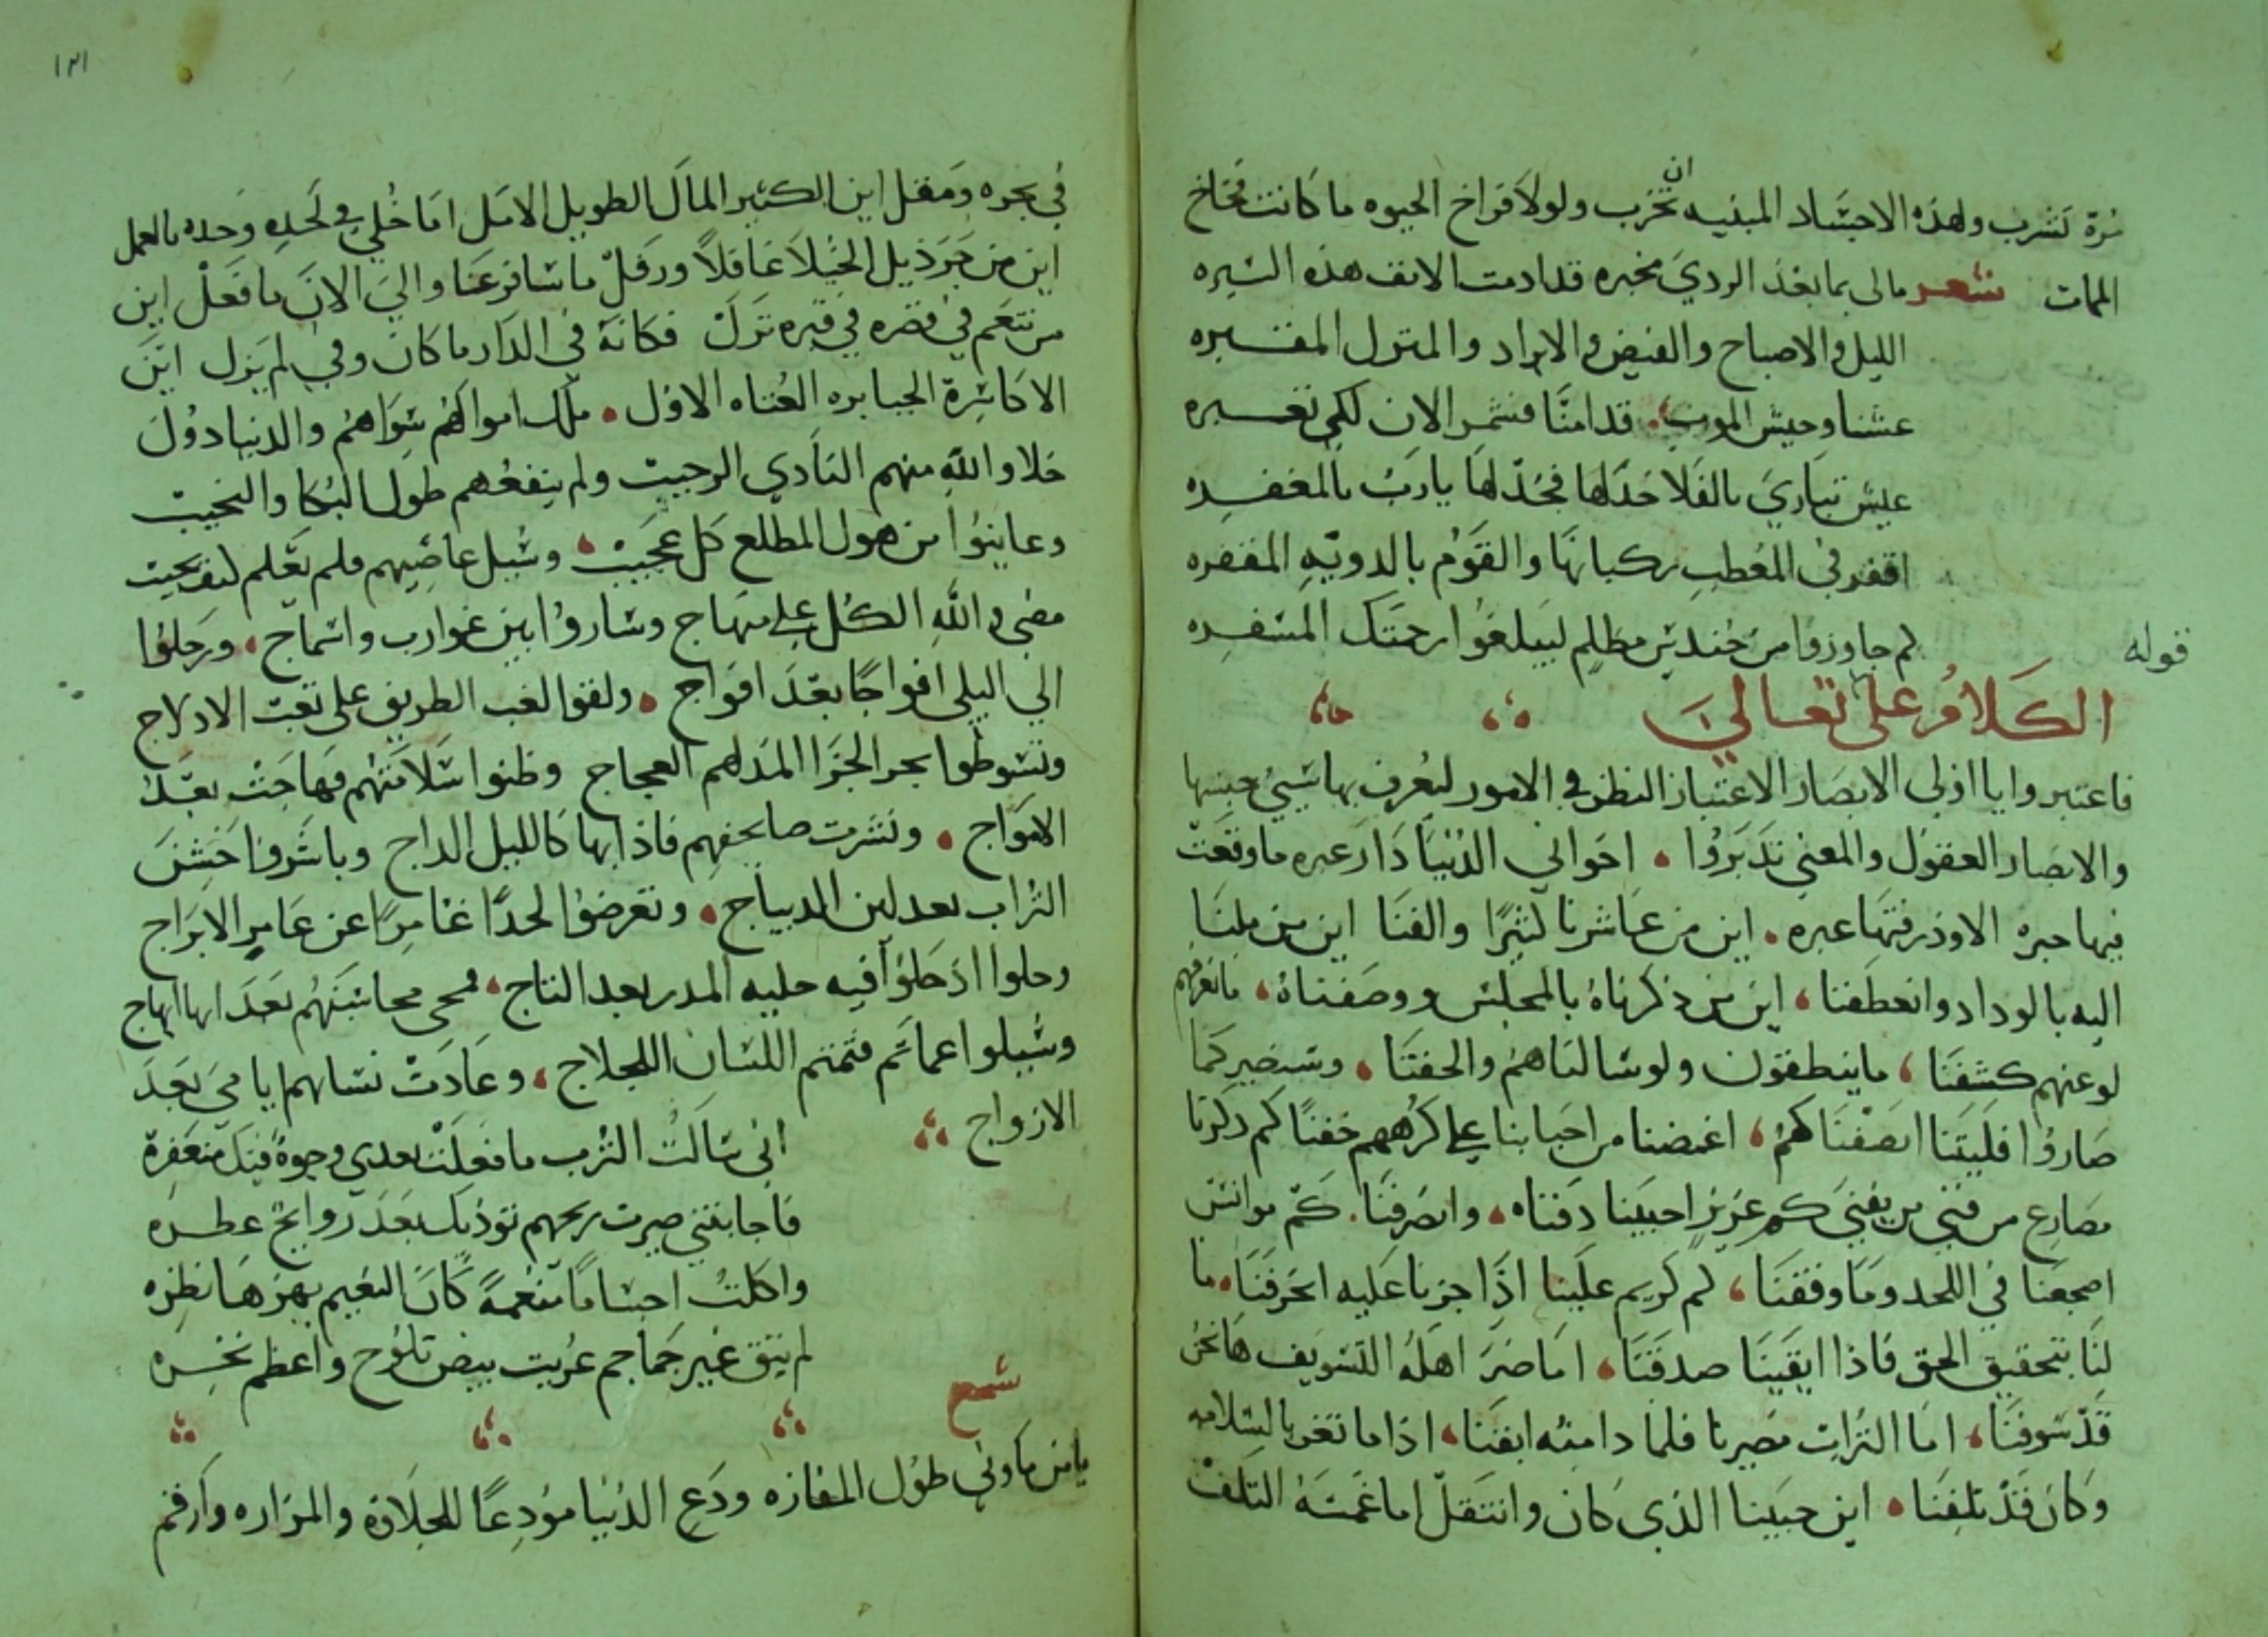 ترة تشرب ولهذه الاجساد المبنيه ان تخرب ولولا فراخ الحيوه ما كانت فخاخ
الممات شعر مالى بما بعد الردي مخبره قد ادمت الانف هذه البره
الليل والاصباح والفيض والابراد والمنزل المقفره
عشنا وجيش الموت قدامنا فنشمر الان لكي نعبره
عيش تباري بالفلا خدلها فجد لها يا رب بالمغفره
اقفر في المعطب ركبانها والقوم بالدويه المقفره
كم جاوزوا من خندس مظلم ليبلغوا رحمتك المسفره
قوله
الكلام على تعالى
فاعتبروا يا اولى الابصار الاعتبار النظر في الامور ليعرف بها شيئ جنسها
والابصار العقول والمعنى تدبروا احوالي الدنيا دار عبره ما وقعت
فيها حبره الا وردفتها عبره اين من عاشرنا كثيرا والفنا اين من ملنا
اليه بالوداد وانعطفنا اين من ذكرناه بالمجلس ووصفناه ما نعرفهم
لو عنهم كشفنا ما ينطقون ولو سالناهم والحفنا وسنصير كما
صاروا فليتنا انصفنا كم اغمضنا من احبابنا على كرههم جفنا كم ذكرنا
مصارع من فني من يفنى كم عزيز احببنا دفناه وانصرفنا كم موانس
اضجعنا في اللحد وما وقفنا كم كريم علينا اذا جزنا عليه انحرفنا ما
لنا بتحقيق الحق فاذا ايقينا صدقنا اما ضر اهله التسويف ها نحن
قد سوفنا اما التراب مصيرنا فلماذا منه انفنا اذا ما تغر بالسلامه
وكان قد تلفنا اين حبيبنا الذي كان وانتقل اما غمسه التلف
١٢١
في بحره ومقل اين الكثير المال الطويل الامل اما خلي في لحده وحده بالعمل
اين من جر ذيل الخيلا غافلا ورفل ما سافر عنا والى الان ما فعل اين
من تنعم في قصره في قبره نزل فكانه في الدار ما كان وفي لم يزل اين
الاكاسرة الجبابره العتاه الاول ملك اموالهم سواهم والدنيا دول
خلا والله منهم النادي الرحيب ولم ينفعهم طول البكا والنحيب
وعاينوا من هول المطلع كل عجيب وسيل عاصيهم فلم يعلم كيف يجيب
مضى والله الكل على منهاج وساروا بين غوارب واثماج ورحلوا
الي البلى افواجا بعد افواج ولقوا لغب الطريق على تعب الادلاج
وتسوطوا بحر الجزا المدلهم العجاج وظنوا سلامتهم فهاجت بعد
الامواج ونشرت صحايفهم فاذا بها كالليل الداج وباشروا خشن
التراب بعد لين الديباج وتعرضوا لحدا غامرا عن عامر الابراج
وحلوا اذ حلوا فيه حليه المدر بعد التاج فمحى محاسنهم بعد ابهاج
وسيلوا عما تم فتمتم اللسان اللجلاج وعادت نساهم ايامى بعد
الازواج اني سالت الترب ما فعلت بعدي وجوه فيك منعفرة
فاجابتني صيرت ريحهم توذيك بعد روايح عطره
واكلت اجسادا منعمة كان النعيم يهزها نظره
لم يبق غير جماجم عريت بيض تلوح واعظم نخره
سجع
يا من ما وني طول المفازه ودع الدنيا مودعا للحلاوة والمزاره وارقم